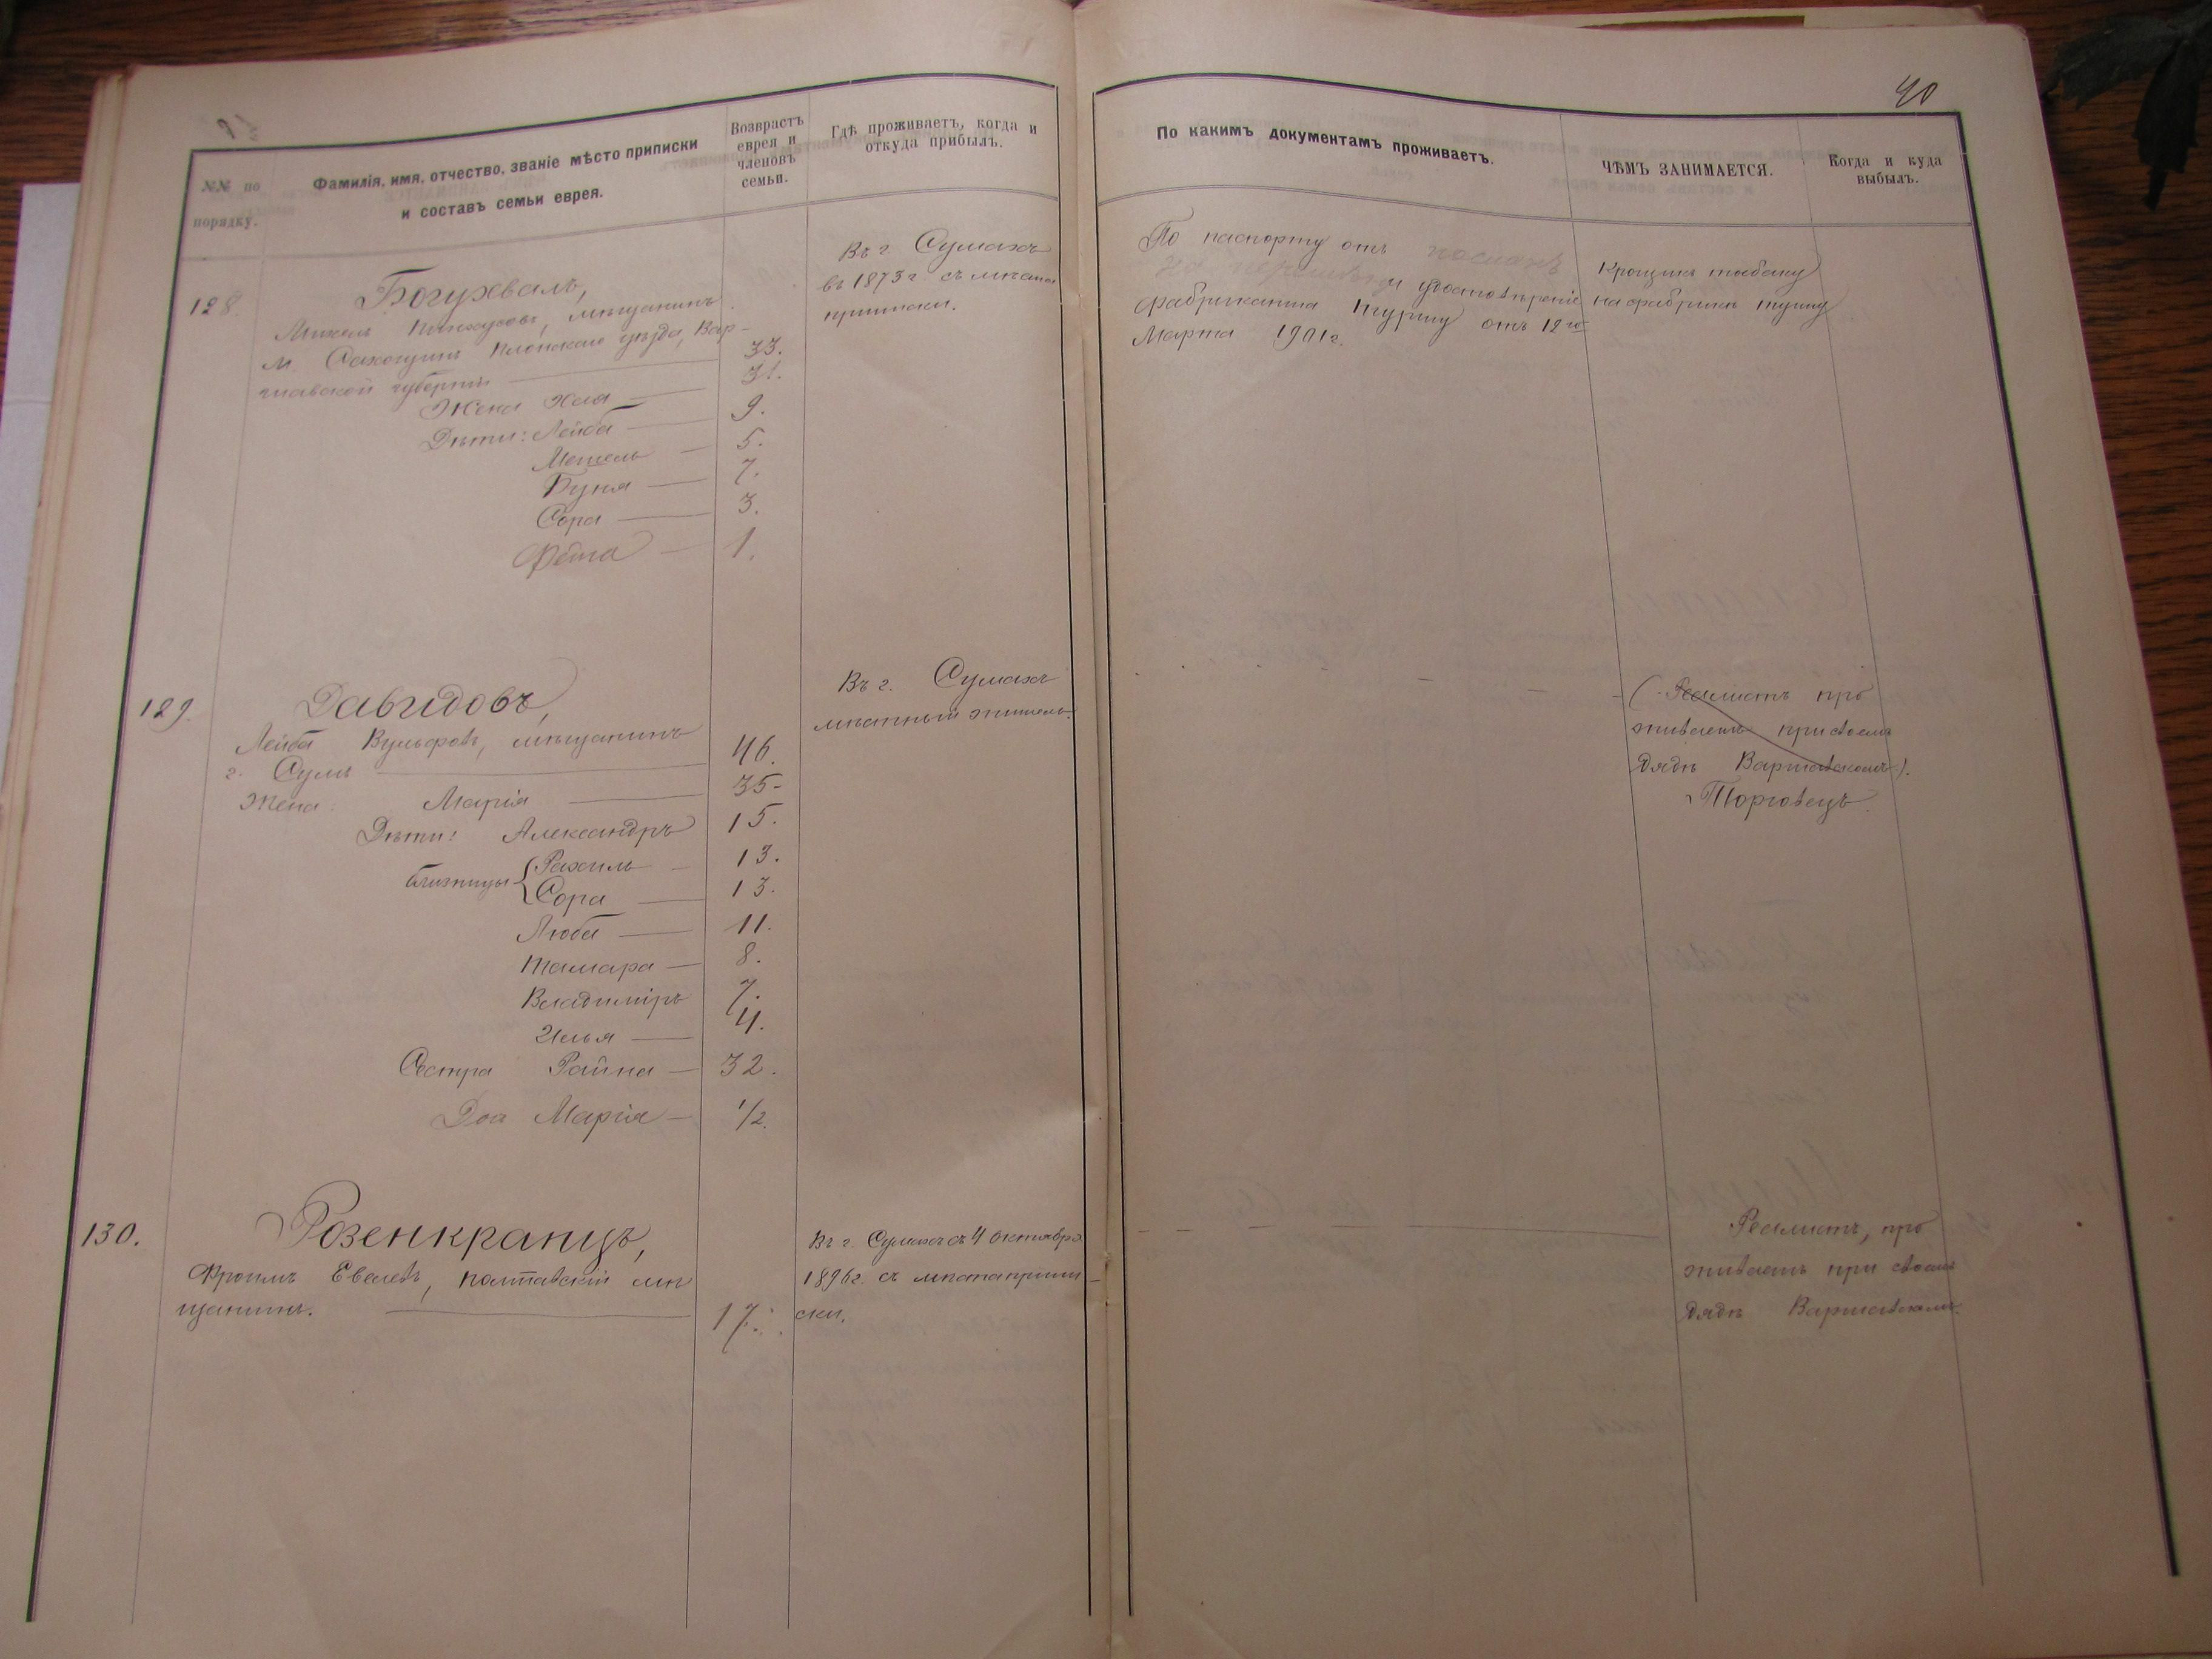 40
№№ по
порядку.
Фамилія, имя, отчество, званіе мѣсто приписки
и составъ семьи еврея.
Возврастъ
еврея и
членовъ
семьи.
Гдѣ проживаетъ, когда и
откуда прибылъ.
По какимъ документамъ проживаетъ.
ЧѢМЪ ЗАНИМАЕТСЯ.
Когда и куда
выбылъ.
128.
Богухвалъ,
Пинхусовъ, мѣщанинъ
м. Сохочинъ Плонскаго уѣзда, Вар-
шавской губерніи 33.
Жена Хая 31.
Дѣти: Лейба 9.
5.
Буня 7.
Сора 3.
1.
Въ г. Сумахъ
въ 1873 г. съ мѣста
приписки.
По паспорту отъ
и удостовѣренію
фабриканта Турину отъ 12го
Марта 1901 г.
Крошитъ табакъ
на фабрикѣ
129.
Давидовъ,
Лейба Вульфовъ, мѣщанинъ
г. Сумъ 46.
Жена Марія 35.
Дѣти: Александръ 15.
близнецы Рахиль 13.
Сора 13.
Люба 11.
Тамара 8.
Владиміръ 7.
Илья 4.
Сестра Райна 32.
Доч Марія 1/2.
Въ г. Сумахъ
мѣстный житель.
(Реалистъ про
живаетъ при своемъ
дядѣ Варшавскомъ).
Торговецъ.
130.
Розенкранцъ,
Фроимъ Евелевъ, полтавскій мѣ
щанинъ. 17.
Въ г. Сумахъ съ 4 октября
1896 г. съ мѣста припи
ски.
Реалистъ, про
живаетъ при своемъ
дядѣ Варшавскомъ.